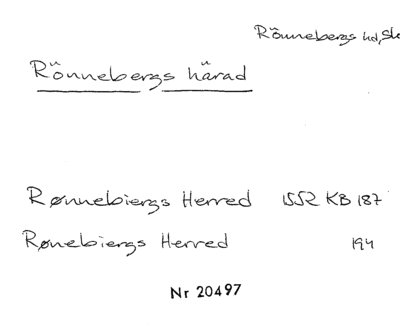 Rönnebergs hd, Sk
Rönnebergs härad
Rønnebiergs Herred 1552 KB 187
Rønebiergs Herred 194
Nr 20497